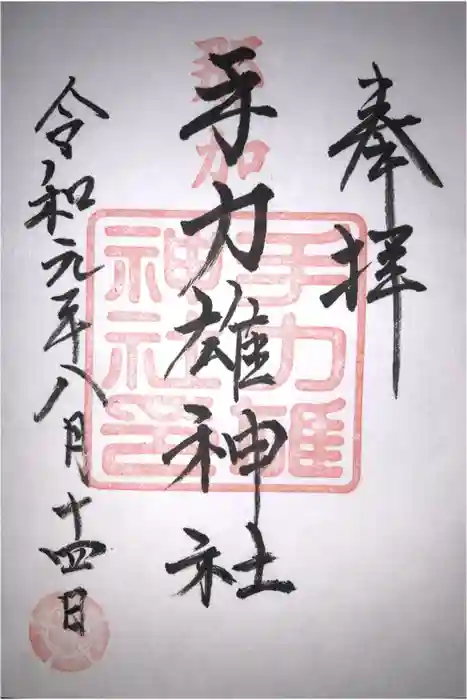 奉拝
各加
手力雄神社
手力雄
神社
令和元年八月十四日